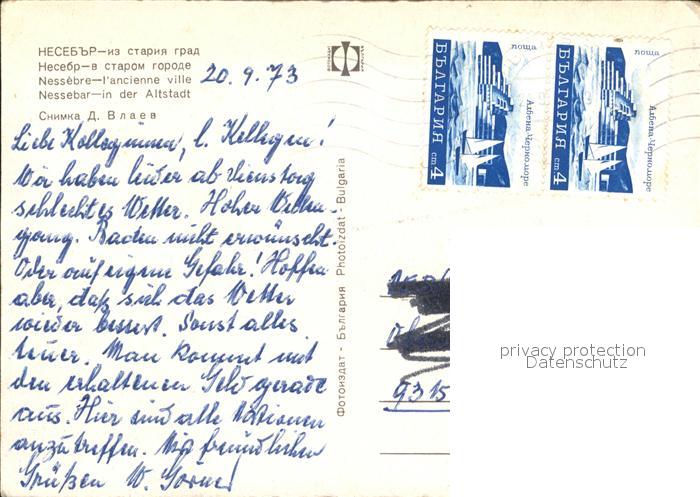 НЕСЕБЪР—из стария град
Несебр—в старом городе
Nessèbre—l'ancienne ville
Nessebar—in der Altstadt
Снимка Д. Влаев
20.9.73
Liebe Kolleginnen, l. Kollegen!
Wir haben leider ab Dienstag
schlechtes Wetter. Hoher Wellen-
gang. Baden nicht erwünscht.
Oder auf eigene Gefahr! Hoffen
aber, daß sich das Wetter
wieder bessert. Sonst alles
teuer. Man kommt mit
den erhaltenen Geld gerade
aus. Hier sind alle Nationen
anzutreffen. Mit freundlichen
Grüßen W.
Фотоиздат - България Photoizdat - Bulgaria
поща
Албена-Черноморе
БЪЛГАРИЯ
ст 4
поща
Албена-Черноморе
БЪЛГАРИЯ
ст 4
9315
privacy protection
Datenschutz